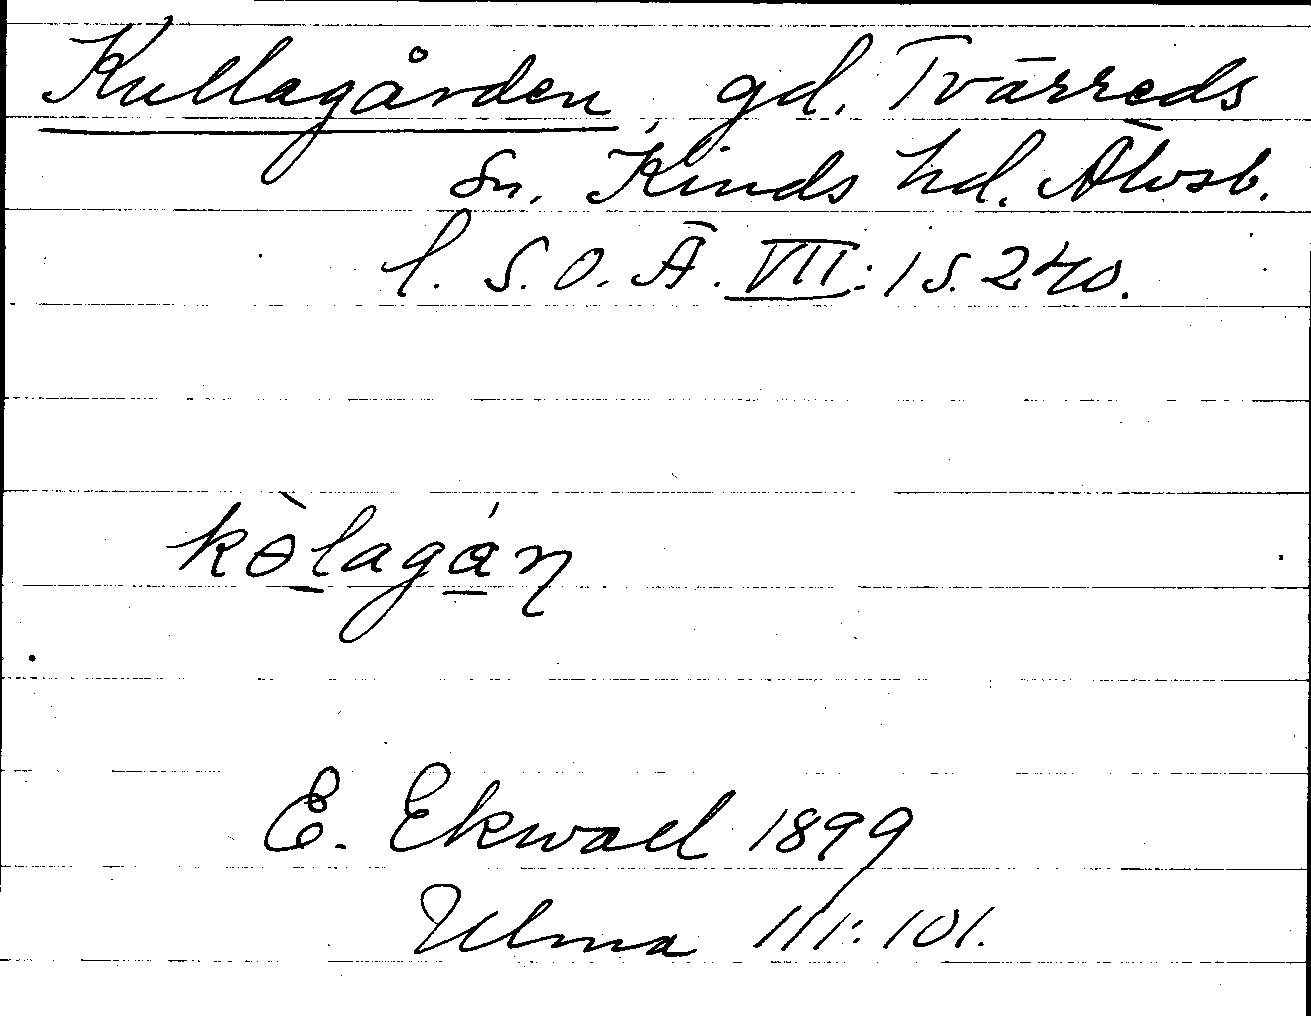 Kullagården, gd. Tvärreds
sn, Kinds hd. Älvsb.
l. S.O.Ä. VII:1 s. 240.
kɵ̀lagán
E. Ekwall 1899
Ulma 111:101.